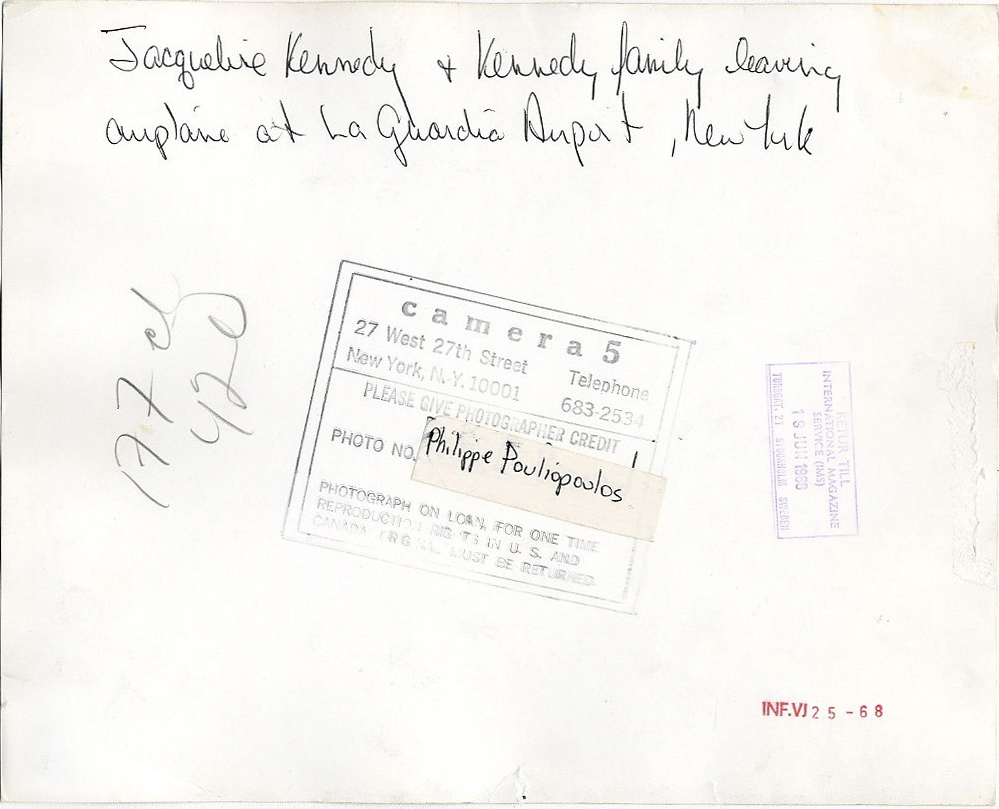 Jacqueline Kennedy + Kennedy family leaving
airplane at La Guardia Airport, New York
camera 5
27 West 27th Street
New York, N.Y. 10001
Telephone
683-2534
PLEASE GIVE PHOTOGRAPHER CREDIT
PHOTO NO.
Philippe Pouliopoulos
PHOTOGRAPH ON LOAN, FOR ONE TIME
REPRODUCTION RIGHTS IN U. S. AND
CANADA ORIGINAL MUST BE RETURNED.
RETUR TILL
INTERNATIONAL MAGAZINE
SERVICE (IMS)
JUN
STOCKHOLM SWEDEN
17.7
42
INF.VJ 25 - 68